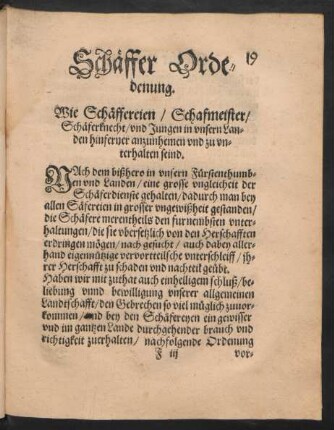 Schäffer Orde- 19
denung.
Wie Schäffereien / Schafmeister /
Schäferknecht / vnd Jungen in vnsern Lan-
den hinferner anzunhemen vnd zu vn-
terhalten seind.
NAch dem bißhero in vnsern Fürstenthumb-
en vnd Landen / eine grosse vngleicheit der
Schäferdienste gehalten / dadurch man bey
allen Säfereien in grosser vngewißheit gestanden /
die Schäfere merentheils den furnembsten vnter-
haltungen / die sie vbersetzlich von den Herschafften
erdringen mögen / nach gesucht / auch dabey aller-
hand eigennützige vervortteilsche vnterschleiff / ih-
rer Herschafft zu schaden vnd nachteil geübt.
Haben wir mit zuthat auch einhelligem schluß / be-
liebung vnnd bewilligung vnserer allgemeinen
Landtschafft / den Gebrechen so viel müglich zuuor-
kommen / vnd bey den Schäfereyen ein gewisser
vnd im gantzen Lande durchgehender brauch vnd
richtigkeit zuerhalten / nachfolgende Ordenung
F iij vor-